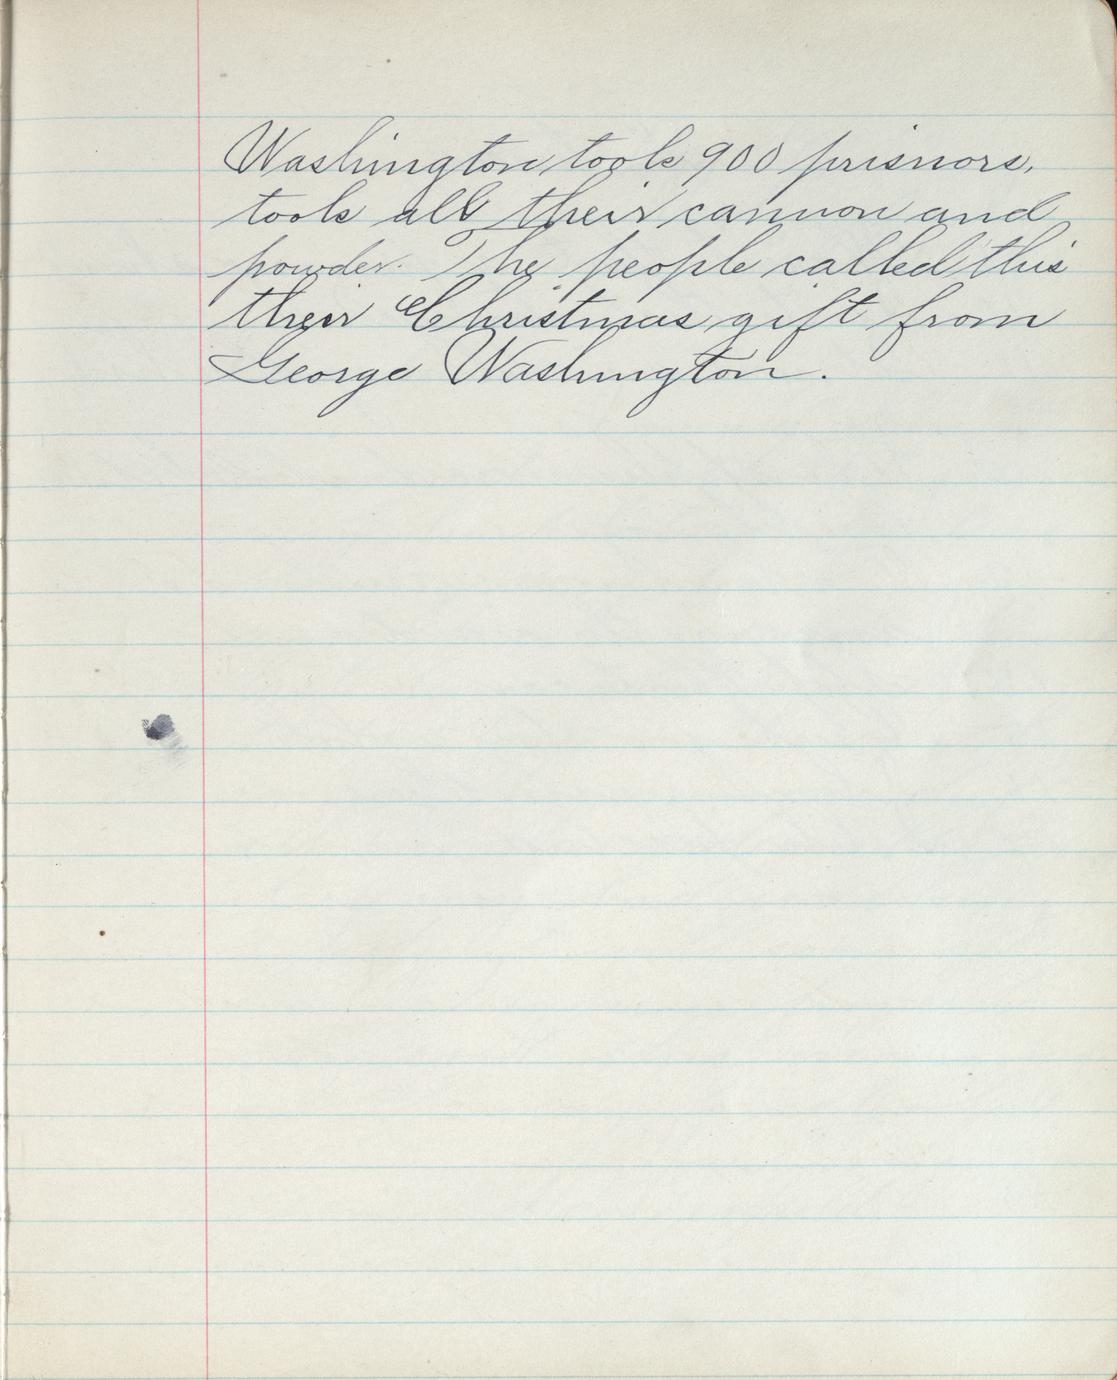 Washington took 900 prisnors,
took all their cannon and
powder. The people called this
their Christmas gift from
George Washington.